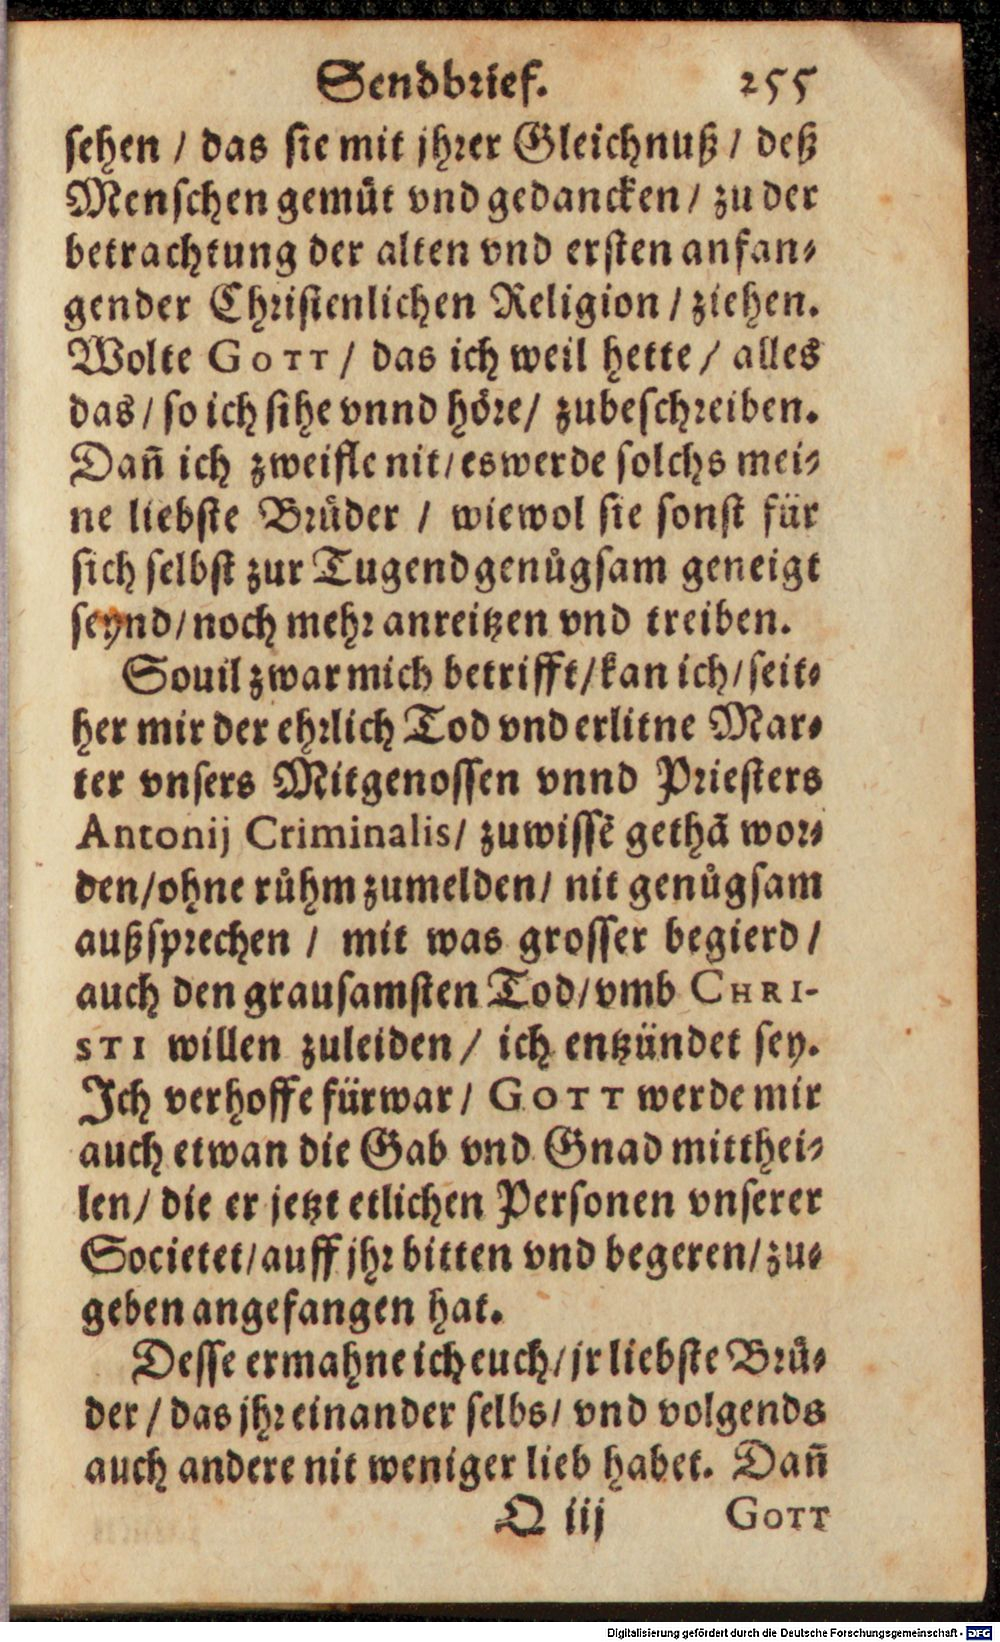 Sendbrief. 255
sehen / das sie mit jhrer Gleichnuß / deß
Menschen gemůt vnd gedancken / zu der
betrachtung der alten vnd ersten anfan-
gender Christenlichen Religion / ziehen.
Wolte GOTT / das ich weil hette / alles
das / so ich sihe vnnd hôre / zubeschreiben.
Dañ ich zweifle nit / es werde solchs mei-
ne liebste Brůder / wiewol sie sonst für
sich selbst zur Tugend genůgsam geneigt
seynd / noch mehr anreitzen vnd treiben.
Souil zwar mich betrifft / kan ich / seit-
her mir der ehrlich Tod vnd erlitne Mar-
ter vnsers Mitgenossen vnnd Priesters
Antonij Criminalis / zuwissẽ gethã wor-
den / ohne růhm zumelden / nit genůgsam
außsprechen / mit was grosser begierd /
auch den grausamsten Tod / vmb CHRI-
STI willen zuleiden / ich entzündet sey.
Ich verhoffe fürwar / GOTT werde mir
auch etwan die Gab vnd Gnad mitthei-
len / die er jetzt etlichen Personen vnserer
Societet / auff jhr bitten vnd begeren / zu-
geben angefangen hat.
Desse ermahne ich euch / jr liebste Brů-
der / das jhr einander selbs / vnd volgends
auch andere nit weniger lieb habet. Dañ
Q iij GOTT
Digitalisierung gefördert durch die Deutsche Forschungsgemeinschaft - DFG